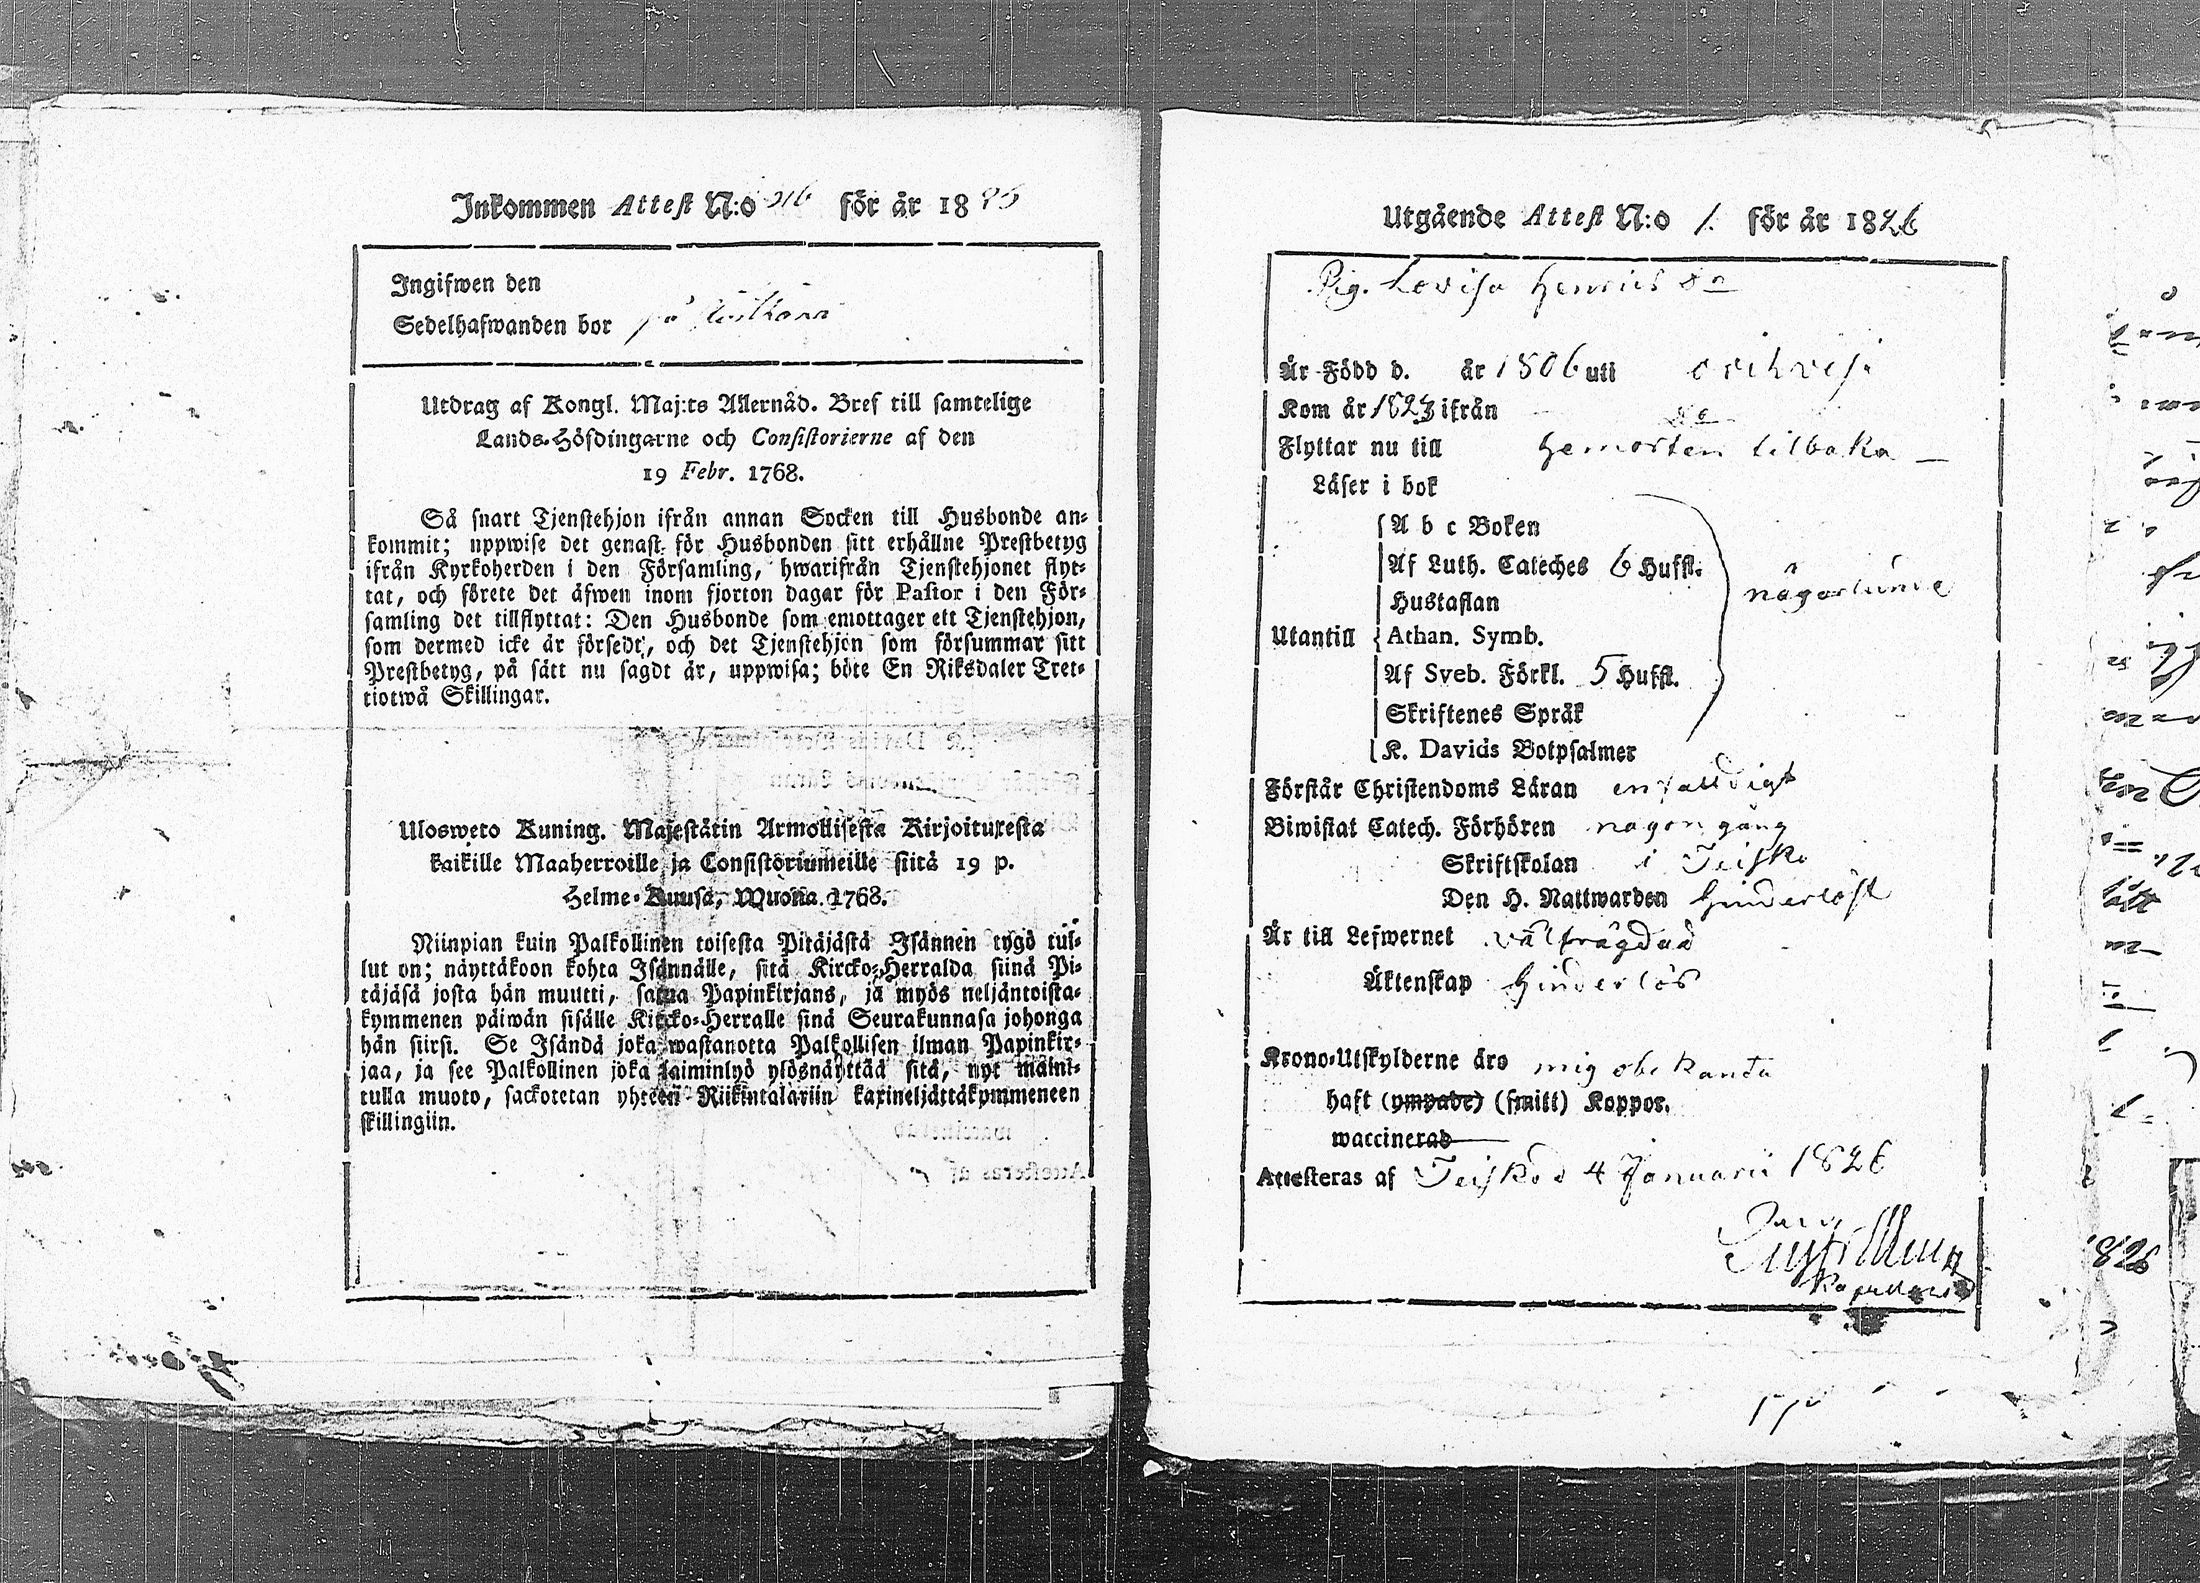 Inkommen Attest N:o för år 18
Ingifwen den
Sedelhafwanden bor på
Utdrag af Kongl. Maj:ts Allernåd. Bref till samtelige
Lands-Höfdingarne och Consistorierne af den
19 Febr. 1768.
Så snart Tjenstehjon ifrån annan Socken till Husbonde an-
kommit; uppwise det genast för Husbonden sitt erhållne Prestbetyg
ifrån Kyrkoherden i den Församling, hwarifrån Tjenstehjonet flyt-
tat, och förete det äfwen inom fjorton dagar för Pastor i den För-
samling det tillflyttat: Den Husbonde som emottager ett Tjenstehjon,
som dermed icke är försedt, och det Tjenstehjon som försummar sitt
Prestbetyg, på sätt nu sagdt är, uppwisa; böte En Riksdaler Tret-
tiotwå Skillingar.
Ulosweto Kuning. Majestätin Armollisesta Kirjoituxesta
kaikille Maaherroille ja Consistoriumeille siitä 19 p.
Helme-Kuusa, Wuona 1768.
Niinpian kuin Palkollinen toisesta Pitäjästä Isännen tygö tul-
lut on; näyttäkoon kohta Isännälle, sitä Kircko-Herralda siinä Pi-
täjäsä josta hän muutti, satua Papinkirjans, ja myös neljäntoista-
kymmenen päiwän sisälle Kircko-Herralle sinä Seurakunnasa johonga
hän siirsi. Se Isändä joka wastanotta Palkollisen ilman Papinkir-
jaa, ja see Palkollinen joka laiminlyö ylösnäyttää sitä, nyt maini-
tulla muoto, sackotetan yhteen Riikintalariin kaxineljättäkymmeneen
skillingiin.
Utgående Attest N:o 1. för år 1826
Pig. Lovisa Henrics dr
Är Född d. år 1806 uti orihvesi
Kom år 1823 ifrån do
Flyttar nu till hemorten tilbaka
Läser i bok
A b c Boken
Af Luth. Cateches 6 Hufst.
Hustaflan någorlunda
Utantill Athan. Symb.
Af Sveb. Förkl. 5 Hufst.
Skriftenes Språk
K. Davids Botpsalmer
Förstår Christendoms Läran enfalldigt
Biwistat Catech. Förhören någon gång
Skriftskolan i Teisko
Den H. Nattwarden hinderlöst
Är till Lefwernet välfrägdad
Äktenskap hinderlös
Krono-Utskylderne äro mig obekanta
haft (ympade) (smitt) Koppor.
waccinerad
Attesteras af Teisko d 4 Januarii 1826